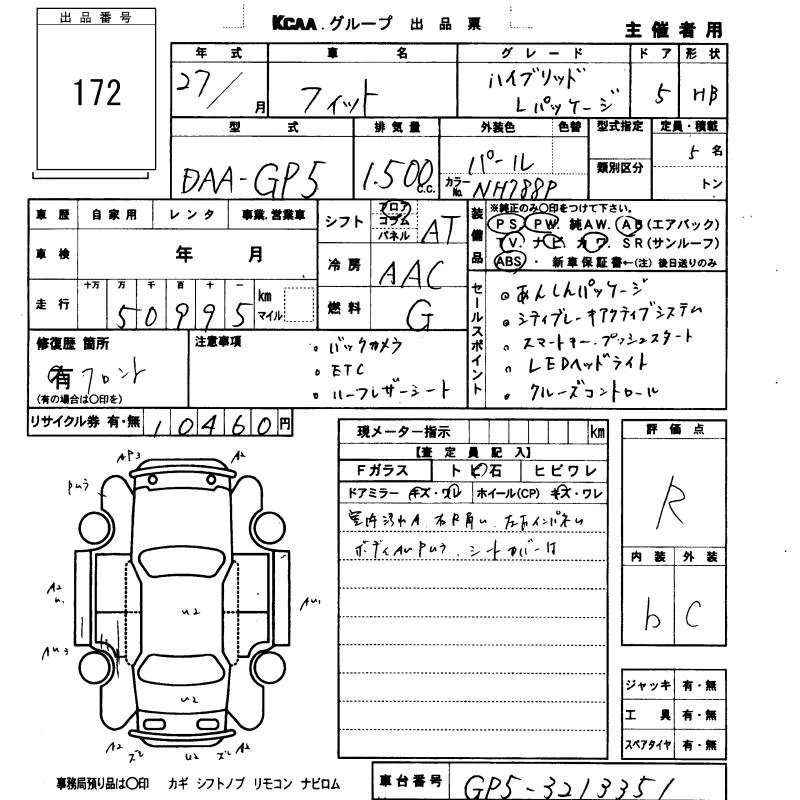 出品番号
172
KCAA.グループ 出品票
主催者用
年式 車名 グレード ドア 形状
27/ 月 フィット ハイブリッド Lパッケージ 5 HB
型式 排気量 外装色 色替 型式指定 定員・積載
DAA-GP5 1.500 c.c. パール カラーNo. NH788P 類別区分 5名 トン
車歴 自家用 レンタ 事業.営業車
車検 年 月
走行 十万 万 千 百 十 一 km マイル
50995
シフト フロア コラム パネル AT
冷房 AAC
燃料 G
装備品 ※純正のみ〇印をつけて下さい。
PS. PW. 純AW. AB(エアバック)
TV. ナビ カワ SR(サンルーフ)
ABS・ 新車保証書←(注) 後日送りのみ
セールスポイント
。あんしんパッケージ
。シティブレーキアクティブシステム
。スマートキー.プッシュスタート
。LEDヘッドライト
。クルーズコントロール
修復歴 箇所
有 フロント
(有の場合は〇印を)
注意事項
。バックカメラ
。ETC
。ハーフレザーシート
リサイクル券 有・無 10460円
現メーター指示 km
【査定員記入】
Fガラス ト ビ 石 ヒビワレ
ドアミラー キズ・ワレ ホイール(CP) キズ・ワレ
ボディAUPウラ. シートカバー
評価点
R
内装 外装
b C
ジャッキ 有・無
工具 有・無
スペアタイヤ 有・無
AP3 A2
Pウラ
A2
U2 AU1
AU3
U2
A2 U2 A2
事務局預り品は〇印 カギ シフトノブ リモコン ナビロム
車台番号 GP5-3213351